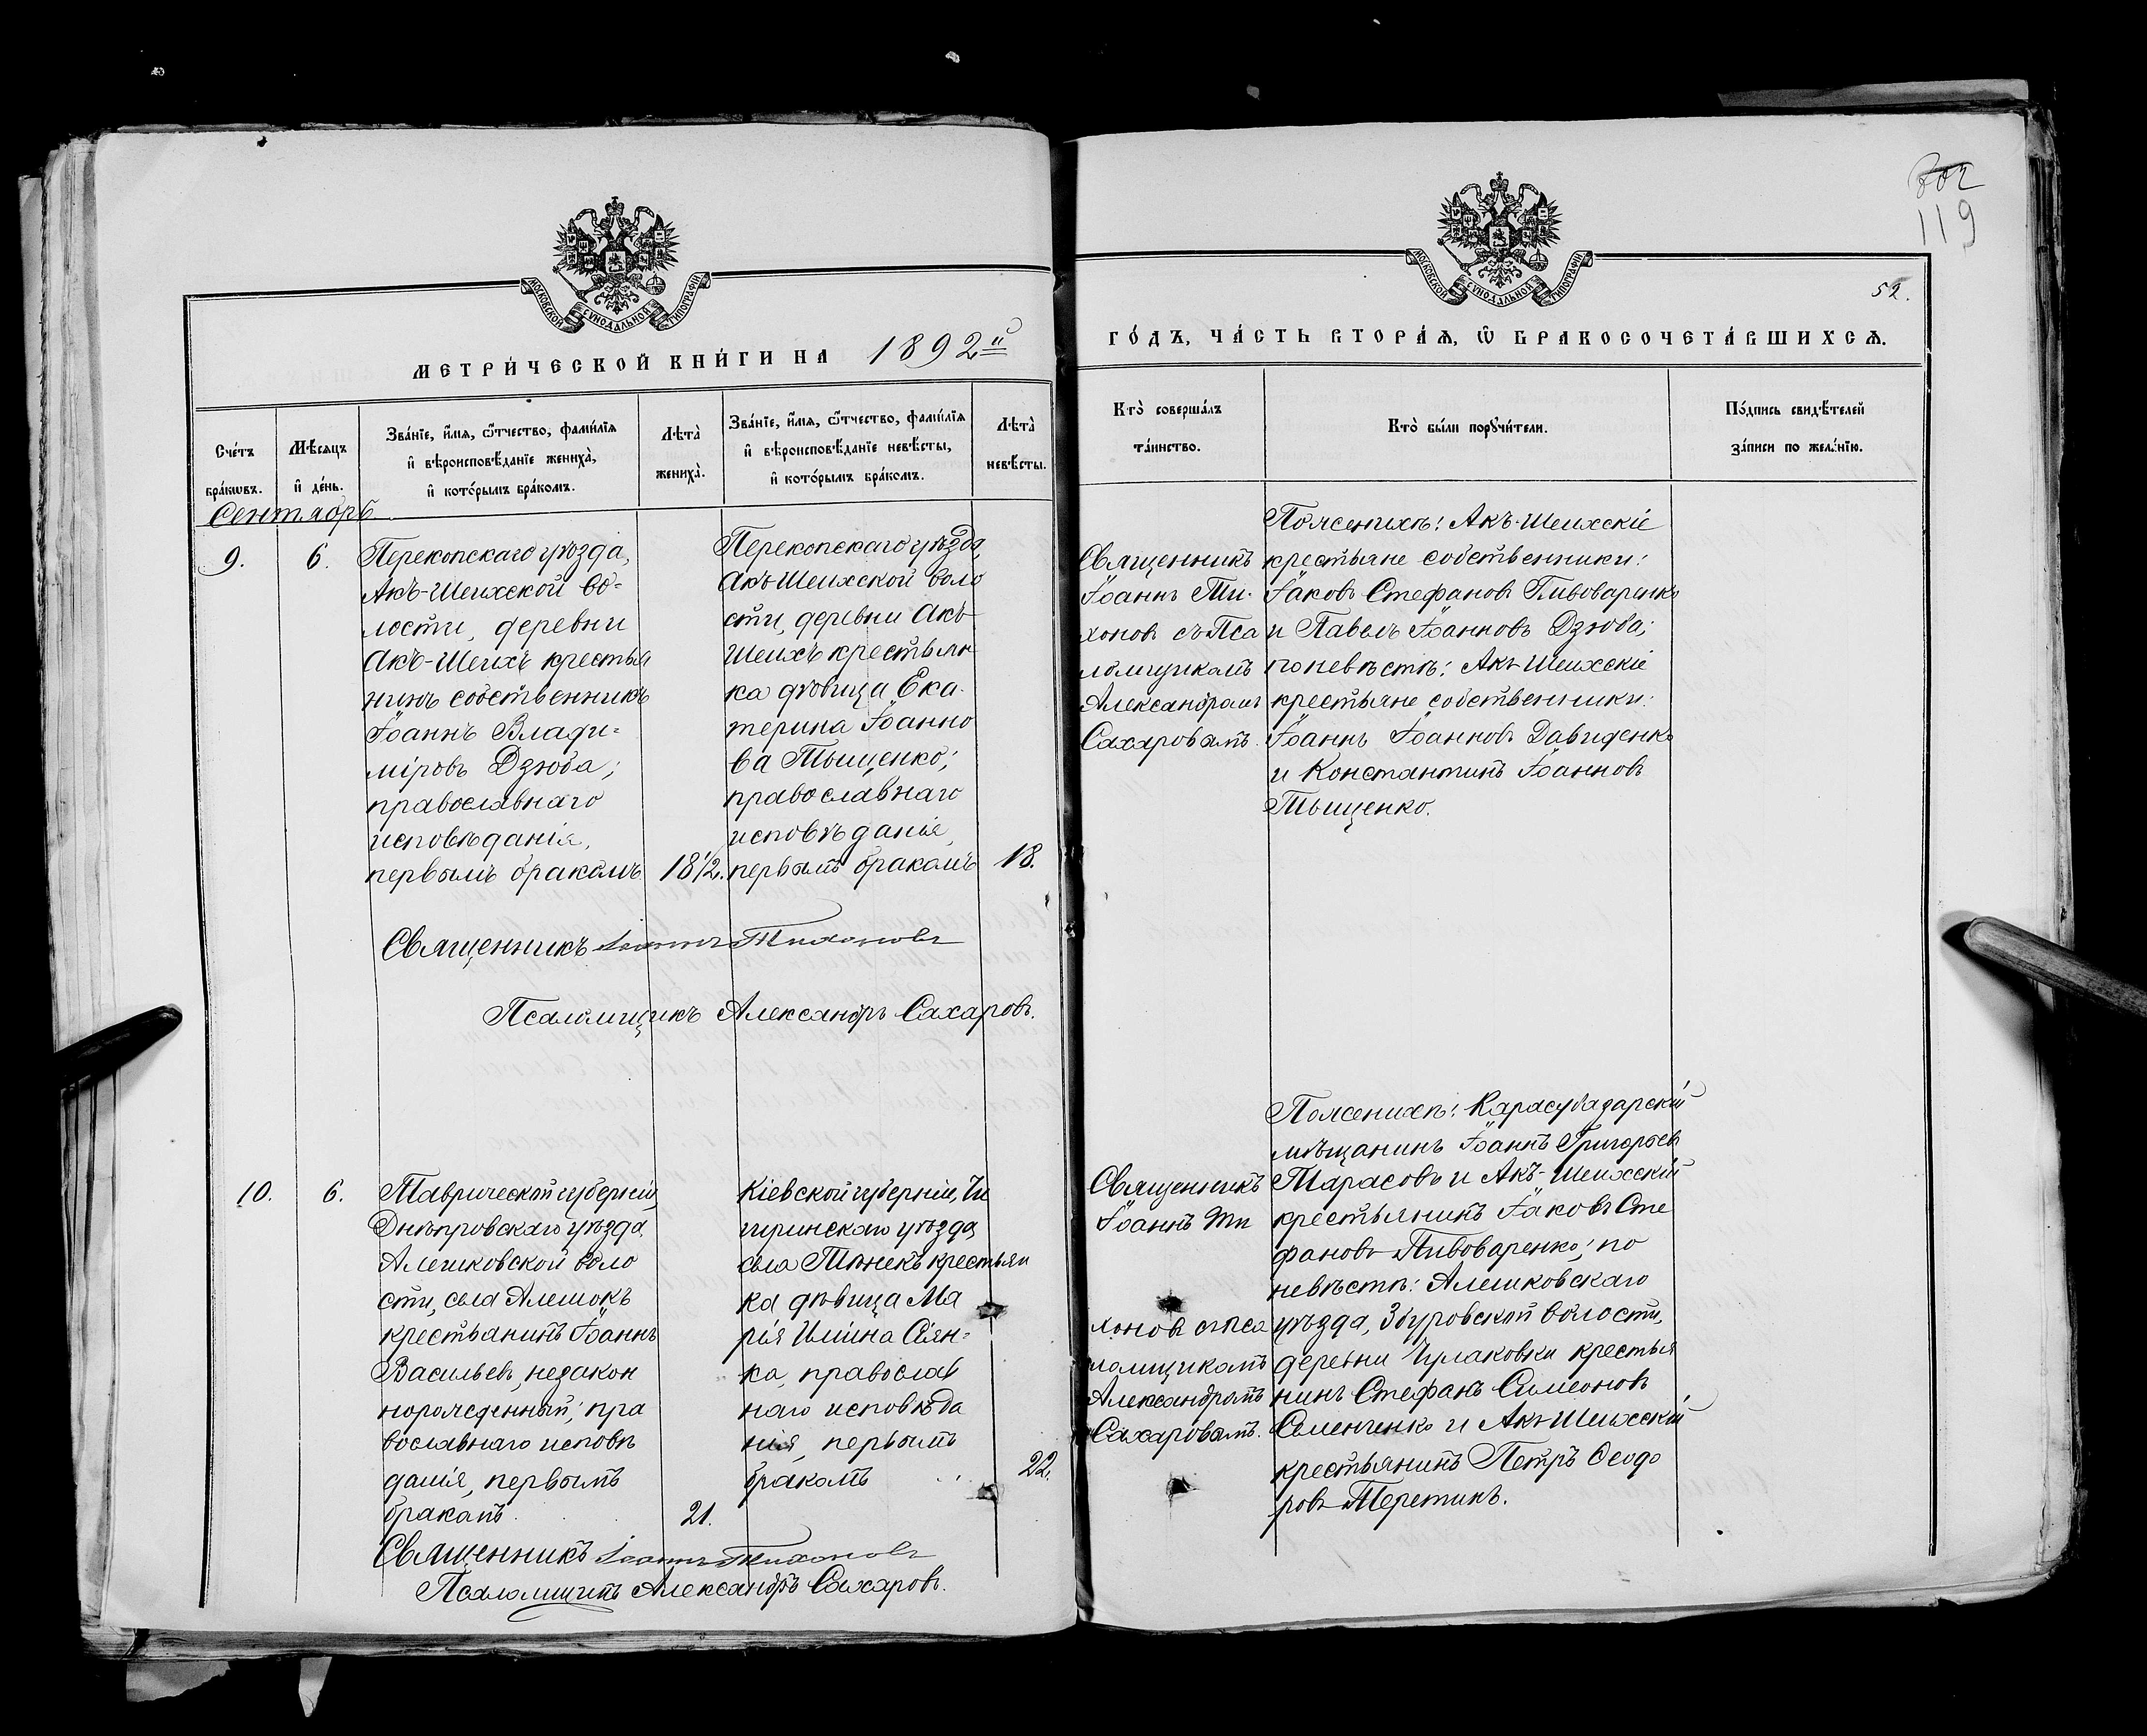 802
119
52.
МОСКОВСКОЙ СУНОДАЛЬНОЙ ТИПОГРАФІИ
МОСКОВСКОЙ СУНОДАЛЬНОЙ ТИПОГРАФІИ
МЕТРИ́ЧЕСКОЙ КНИ́ГИ НА 1892й
ГО́ДЪ, ЧА́СТЬ ВТОРА́Ѧ, Ѽ БРАКОСОЧЕТА́ВШИХСѦ.
Сче́тъ
бра́кѡвъ.
Мѣ́сяцъ
и҆ де́нь.
Зва́нїе, и҆́мѧ, ѻ҆́тчество, фами́лїѧ
и҆ вѣроисповѣ́данїе жениха̀,
и҆ кото́рымъ бра́комъ.
Лѣта̀
жениха̀.
Зва́нїе, и҆́мѧ, ѻ҆́тчество, фами́лїѧ
и҆ вѣроисповѣ́данїе невѣ́сты,
и҆ кото́рымъ бра́комъ.
Лѣта̀
невѣ́сты.
Кто̀ соверша́лъ
та́инство.
Кто̀ бы́ли порꙋчи́тели.
По́дпись свидѣ́телей
за́писи по жела́нїю.
Сентябрь
9.
6.
Перекопскаго уѣзда,
Акъ-Шеихской во-
лости, деревни
Акъ-Шеихъ крестья
нинъ собственникъ
Іоаннъ Влади-
міровъ Дзюба;
православнаго
исповѣданія,
первымъ бракомъ.
18½.
Перекопскаго уѣзда,
Акъ-Шеихской воло
сти, деревни Акъ-
Шеихъ крестьян
ка дѣвица Ека-
терина Іоанно
ва Тыщенко;
православнаго
исповѣданія,
первымъ бракомъ
18.
Священникъ
Іоаннъ Ти-
хоновъ съ Пса
ломщикомъ
Александромъ
Сахаровымъ.
По женихѣ: Акъ-Шеихскіе
крестьяне собственники:
Іаковъ Стефановъ Пивоваренко
и Павелъ Іоанновъ Дзюба;
по невѣстѣ: Акъ-Шеихскіе
крестьяне собственники:
Іоаннъ Іоанновъ Давиденко
и Константинъ Іоанновъ
Тыщенко.
Священникъ Іоаннъ Тихоновъ
Псаломщикъ Александръ Сахаровъ.
10.
6.
Таврической губерніи,
Днѣпровскаго уѣзда,
Алешковской воло
сти, села Алешокъ
крестьянинъ Іоаннъ
Васильевъ, незакон
норожденный; пра
вославнаго исповѣ
данія, первымъ
бракомъ.
21.
Кіевской губерніи, Чи
гиринскаго уѣзда,
села Тѣнекъ крестьян
ка дѣвица Ма
рія Иліина Сіян-
ка, православ
наго исповѣда
нія, первымъ
бракомъ
22.
Священникъ
Іоаннъ Ти
хоновъ съ Пса
ломщикомъ
Александромъ
Сахаровымъ.
По женихѣ: Карасубазарскій
мѣщанинъ Іоаннъ Григорьевъ
Тарасовъ и Акъ-Шеихскій
крестьянинъ Іаковъ Сте
фановъ Пивоваренко; по
невѣстѣ: Алешковскаго
уѣзда, Збурьевской волости,
деревни Чулаковки крестья
нинъ Стефанъ Симеоновъ
Семенченко и Акъ-Шеихскій
крестьянинъ Петръ Ѳеодо
ровъ Теретикъ.
Священникъ Іоаннъ Тихоновъ
Псаломщикъ Александръ Сахаровъ.